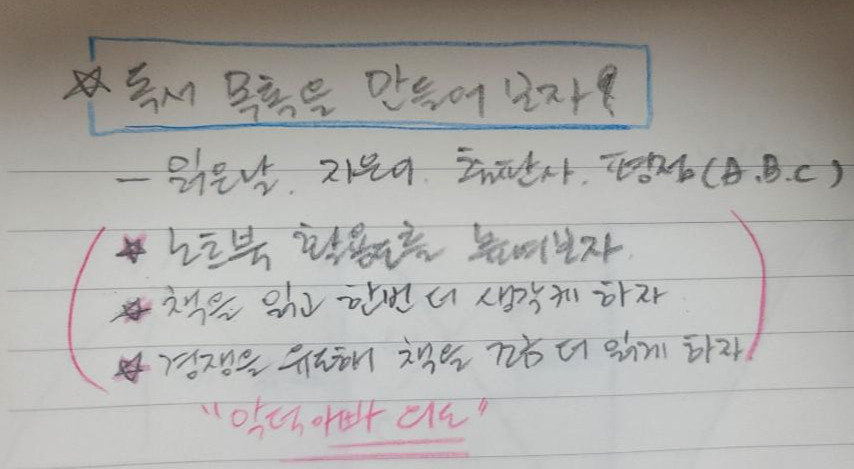 ☆ 독서 목록을 만들어 보자!
- 읽은날. 지은이. 출판사. 평점(A.B.C)
☆ 노트북 활용도를 높여보자.
☆ 책을 읽고 한번 더 생각케 하자
☆ 경쟁을 유도해 책을 꼼 더 읽게 하자.
"악덕아빠 의도"